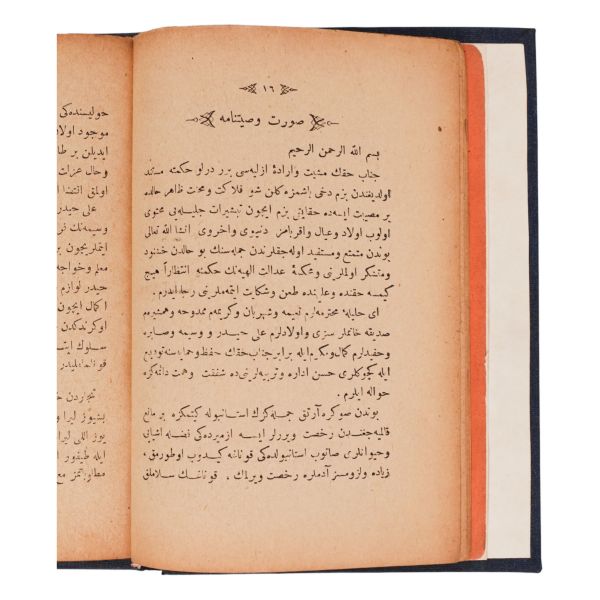 ١٦
صورت وصيتنامه
بسم الله الرحمن الرحيم
جناب حقك مشيت وارادۀ ازليه‌سى برر درلو حكمته مستند
اولديغندن بزم دخى باشمزه كلن شو فلاكت ومحنت ظاهر حالده
بر مصيبت ايسه‌ده حقايق بزم ايچون تبشيرات جليله‌يى محتوى
اولوب اولاد وعيال واقربامز دنيوى واخروى انشا الله تعالى
بوندن متمتع ومستفيد اوله‌جقلرندن جمله‌سنك بو حالدن خشنود
ومتشكر اولملرينى ومحكمۀ عدالت الهيه‌نك حكمنه انتظاراً هيچ
كيمسه حقنده وعليهنده طعن وشكايت ايتمه‌ملرينى رجا ايدرم .
اى حليلۀ محترمه‌لرم نعيمه وشهربان وكريمه‌م ممدوحه وهمشيره‌م
صديقه خانملر سزى واولادلرم على حيدر و وسيمه وصابره
وحفيدلرم كمال ومكرم ايله برابر جناب حقك حفظ وحمايه‌سنه توديع
ايله كوچوكلرى حسن اداره وتربيه‌لرينى‌ده شفقت وهمت ذاتكزه
حواله ايلرم .
بوندن صوكره آرتق جمله‌كزك استانبوله كيتمكزه بر مانع
قالميه‌جغندن رخصت ويررلر ايسه ازميرده‌كى فضله اشيايى
وحيوانلرى صاتوب استانبولده‌كى قوناغه كيدوب اوطورمق ،
زياده ولزومسز آدملره رخصت ويرمك . قوناغك سلاملق
حوليسنده‌كى
موجود اولاد
ايديلن بر
وحال
اولمق
على حيدر
وسيمه‌نك
ايتملريچون
معلم وخواجه
حيدر لوازم
اكمال ايچون
اوكرندكدن
سلوك
بشيوز ليرا و
يوز اللى ليرا
ايله طيفور